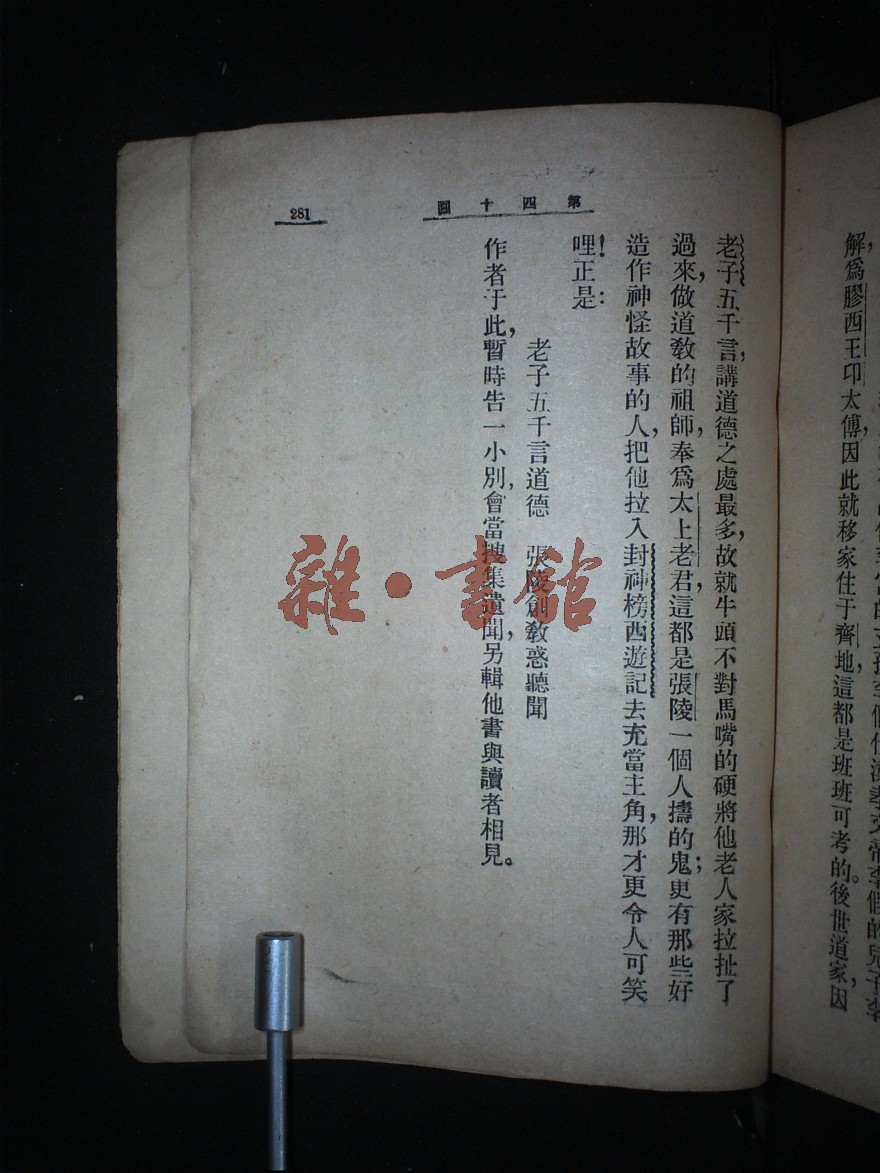 解爲膠西王卬太傅，因此就移家住于齊地，這都是班班可考的。後世道家，因
第四十回
281
老子五千言，講道德之處最多，故就牛頭不對馬嘴的硬將他老人家拉扯了
過來，做道敎的祖師，奉爲太上老君，這都是張陵一個人擣的鬼；更有那些好
造作神怪故事的人，把他拉入封神榜西遊記去充當主角，那才更令人可笑
哩！正是：
老子五千言道德　張陵創敎惑聽聞
作者于此，暫時告一小別，會當搜集遺聞，另輯他書與讀者相見。
雜·書館